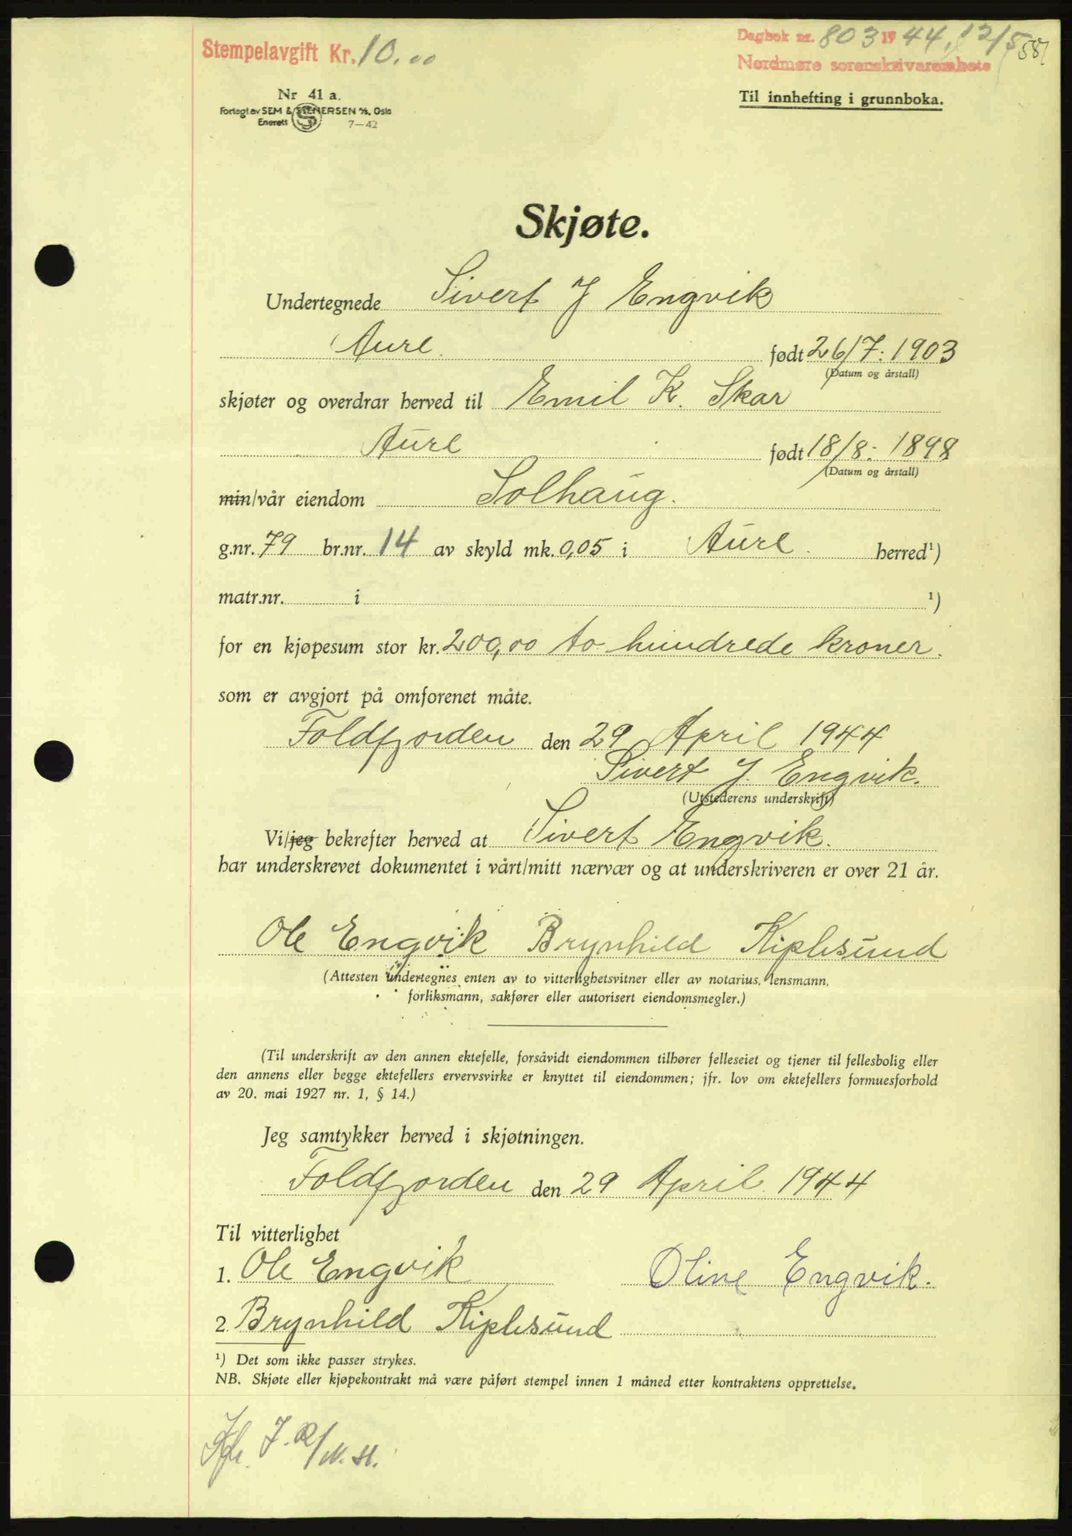 Stempelavgift Kr. 10.00
Dagbok nr. 803 1944, 12/5 58
Nordmøre sorenskriverembete
Nr 41 a.
Forlagt av SEM & STENERSEN A/S, Oslo
Enerett 7-42
Til innhefting i grunnboka.
Skjøte.
Undertegnede Sivert J Engvik
Aure. født 26/7: 1903
(Datum og årstall)
skjøter og overdrar herved til Emil K. Skar
Aure født 18/8: 1898
(Datum og årstall)
min/vår eiendom Solhaug.
g.nr. 79 br.nr. 14 av skyld mk. 0,05 i Aure. herred¹)
matr.nr. i ¹)
for en kjøpesum stor kr. 200,00 to hundrede kroner.
som er avgjort på omforenet måte.
Foldfjorden den 29 April 1944
Sivert J. Engvik.
(Utstederens underskrift)
Vi/jeg bekrefter herved at Sivert Engvik.
har underskrevet dokumentet i vårt/mitt nærvær og at underskriveren er over 21 år.
Ole Engvik Brynhild Kiplesund
(Attesten undertegnes enten av to vitterlighetsvitner eller av notarius, lensmann,
forliksmann, sakfører eller autorisert eiendomsmegler.)
(Til underskrift av den annen ektefelle, forsåvidt eiendommen tilhører felleseiet og tjener til fellesbolig eller
den annens eller begge ektefellers ervervsvirke er knyttet til eiendommen; jfr. lov om ektefellers formuesforhold
av 20. mai 1927 nr. 1, § 14.)
Jeg samtykker herved i skjøtningen.
Foldfjorden den 29 April 1944
Til vitterlighet
1. Ole Engvik Oline Engvik.
2. Brynhild Kiplesund
¹) Det som ikke passer strykes.
NB. Skjøte eller kjøpekontrakt må være påført stempel innen 1 måned etter kontraktens opprettelse.